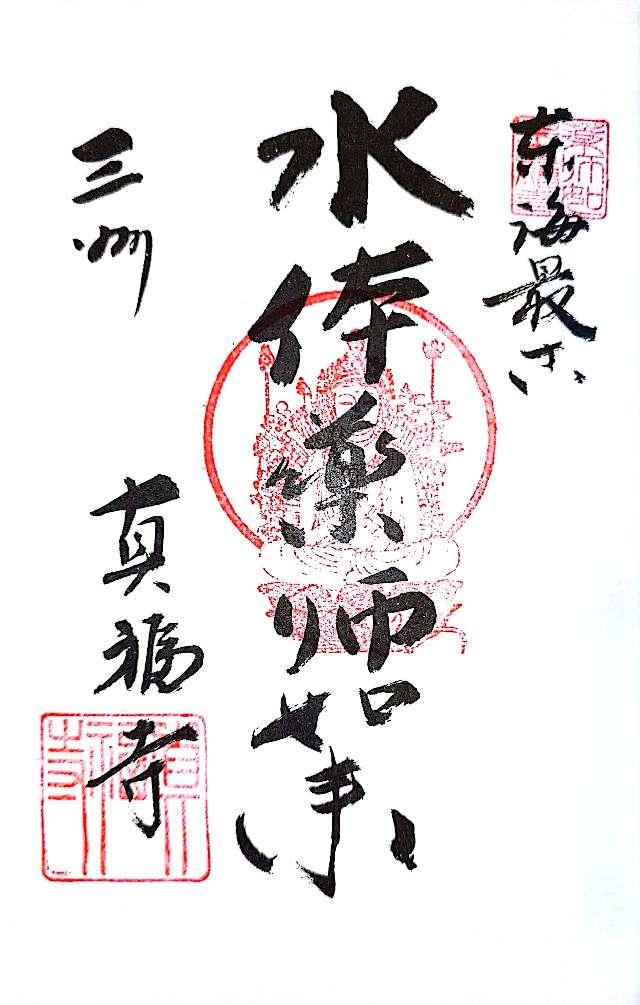 東海最古
水体薬師如来
三州
真福寺